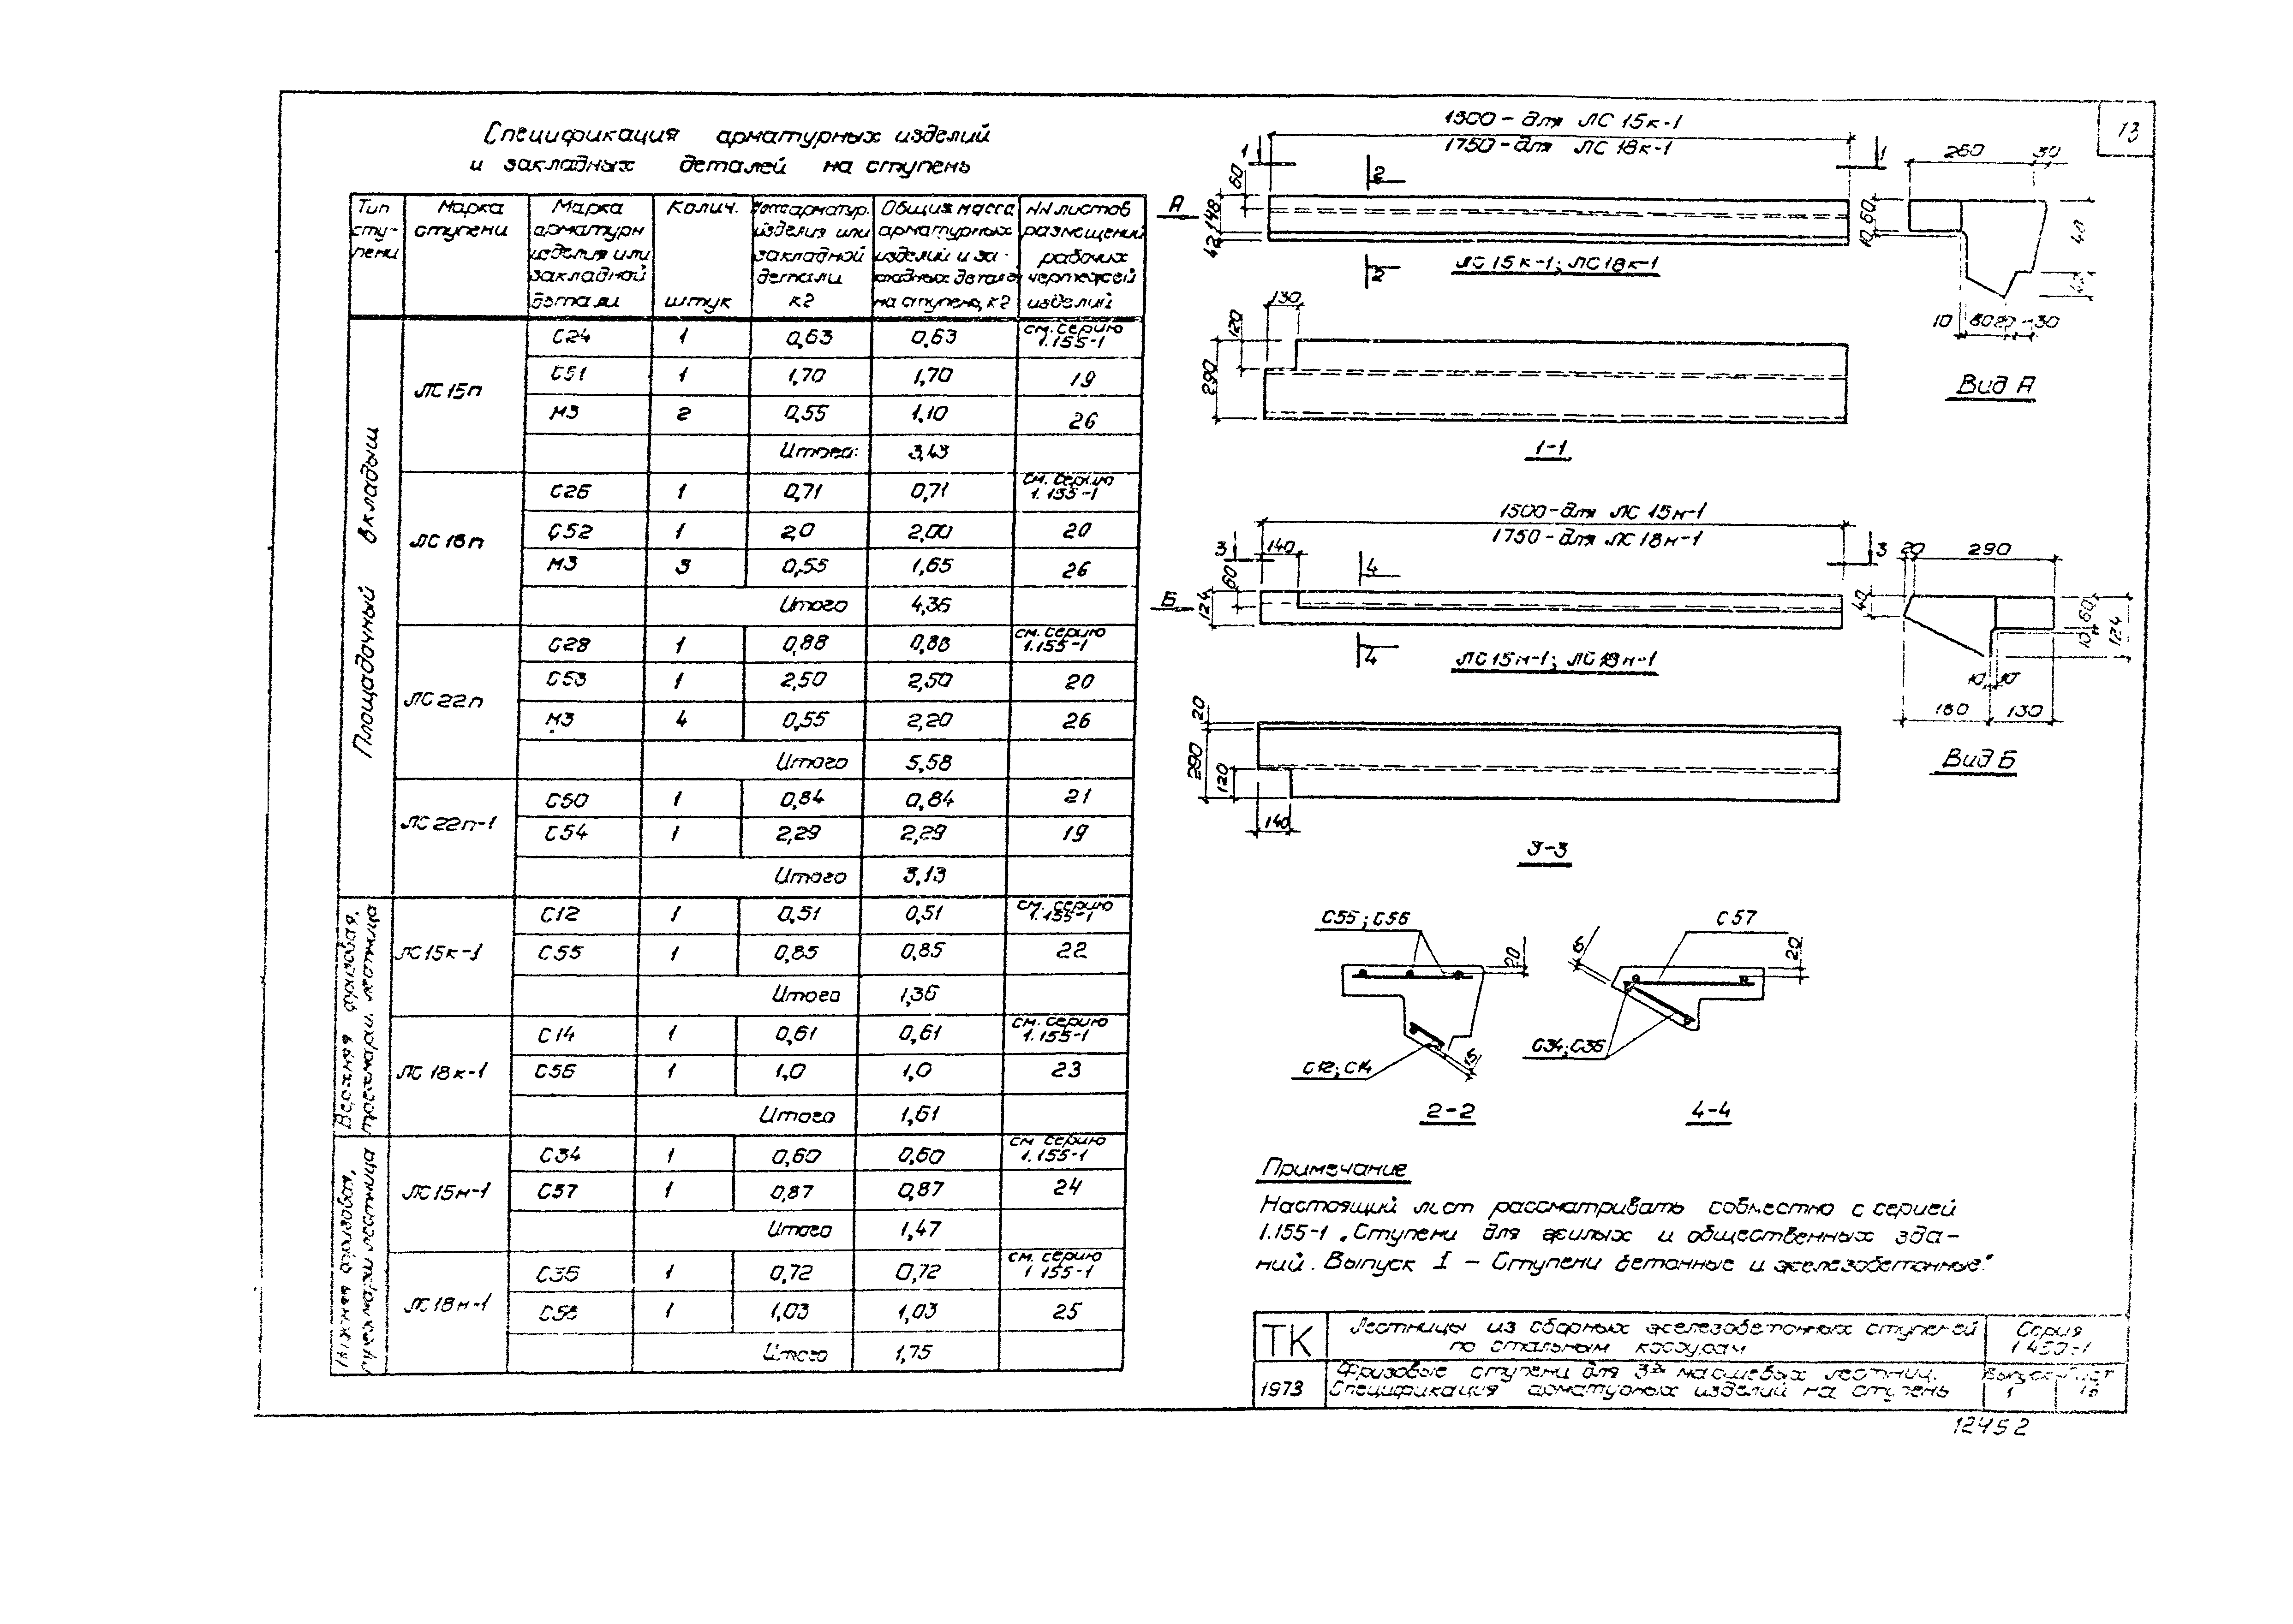 13
Спецификация арматурных изделий
и закладных деталей на ступень
Тип ступени | Марка ступени | Марка арматурн изделия или закладной детали | Колич. штук | Масса арматур. изделия или закладной детали кг | Общая масса арматурных изделий и закладных деталей на ступень, кг | NN листов размещения рабочих чертежей изделий
Площадочный вкладыш
ЛС 15п
С24 1 0,63 0,63 см. серию 1.155-1
С51 1 1,70 1,70 19
М3 2 0,55 1,10 26
Итого: 3,43
ЛС 18п
С26 1 0,71 0,71 см. серию 1.155-1
С52 1 2,0 2,00 20
М3 3 0,55 1,65 26
Итого 4,36
ЛС 22п
С28 1 0,88 0,88 см. серию 1.155-1
С53 1 2,50 2,50 20
М3 4 0,55 2,20 26
Итого 5,58
ЛС 22п-1
С50 1 0,84 0,84 21
С54 1 2,29 2,29 19
Итого 3,13
Верхняя фризовая, трехмарш. лестница
ЛС 15к-1
С12 1 0,51 0,51 см. серию 1.155-1
С55 1 0,85 0,85 22
Итого 1,36
ЛС 18к-1
С14 1 0,61 0,61 см. серию 1.155-1
С56 1 1,0 1,0 23
Итого 1,61
Нижняя фризовая, трехмарш лестница
ЛС 15н-1
С34 1 0,60 0,60 см серию 1.155-1
С57 1 0,87 0,87 24
Итого 1,47
ЛС 18н-1
С36 1 0,72 0,72 см. серию 1 155-1
С58 1 1,03 1,03 25
Итого 1,75
1500-для ЛС 15к-1
1750-для ЛС 18к-1
1 1
2
60
148
42
А
2
ЛС 15к-1; ЛС 18к-1
260 30
60
10
40
10 80 20 30
Вид А
130
120
290
1-1
1500-для ЛС 15н-1
1750-для ЛС 18н-1
3 140 3
4
60
124
Б
4
ЛС 15н-1; ЛС 18н-1
20 290
40
60
10
124
10
160 130
Вид Б
20
290
120
140
3-3
С55; С56
20
С12; С14
2-2
С57
20
С34; С36
4-4
Примечание
Настоящий лист рассматривать совместно с серией
1.155-1 „Ступени для жилых и общественных зда-
ний. Выпуск I – Ступени бетонные и железобетонные."
ТК
Лестницы из сборных железобетонных ступеней
по стальным косоурам
Серия
1 450-1
1973
Фризовые ступени для 3х маршевых лестниц.
Спецификация арматурных изделий на ступень
Выпуск 1
Лист
12452